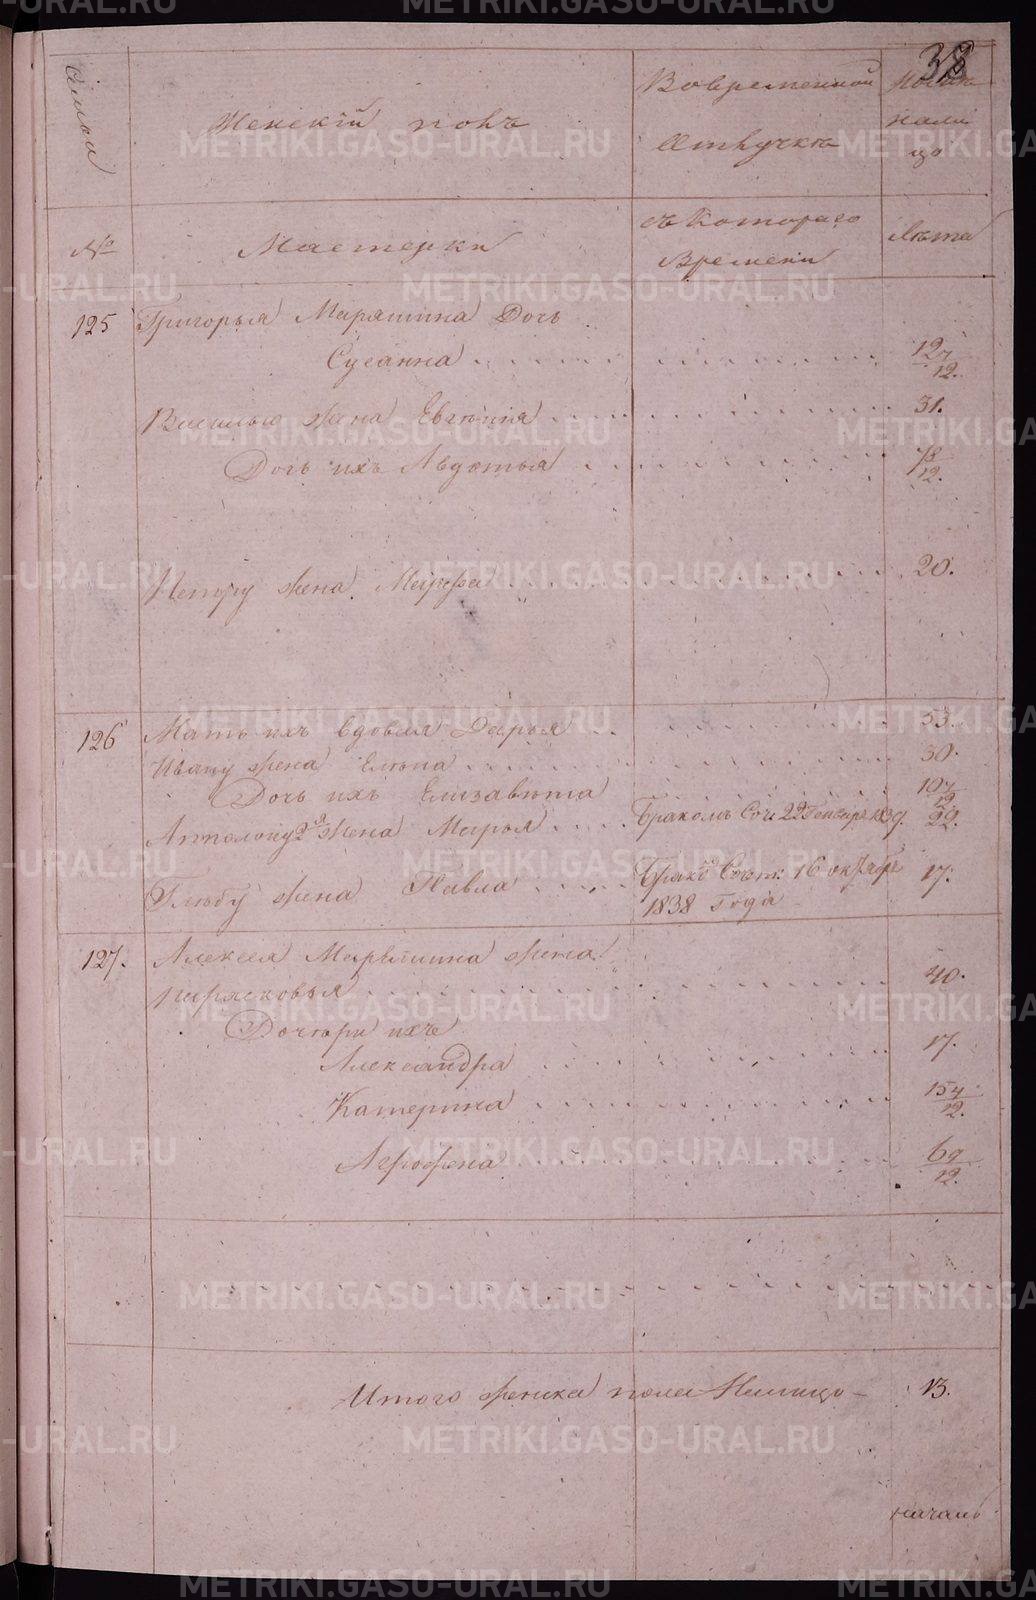 38
Семьи
Женскій полъ
Вовременной
Отлучкѣ
Ноли
цо
№
Мастерки
съ Котораго
Времени
Лѣта
125 Григорья Маряшина Дочь
Сусанна 12 7/12.
Василью жена Евгенія 31.
Дочь ихъ Авдотья 8/12.
Петру жена Марфа 20.
126 Мать ихъ вдовая Дарья 53.
Ивану жена Елена 30.
Дочь ихъ Елизавѣта 10 7/12
2я жена Марья Бракомъ Соч: 22 Генваря 1839. 22.
Глѣбу жена Павла Брако Сочт: 16 октября 17.
1838 Года
127. Алексея Маряшина жена
парасковья 40.
Дочери ихъ
Александра 17.
Катерина 15 4/12.
Агрофена 6 9/12.
Итого женска пола Налицо 13.
METRIKI.GASO-URAL.RU